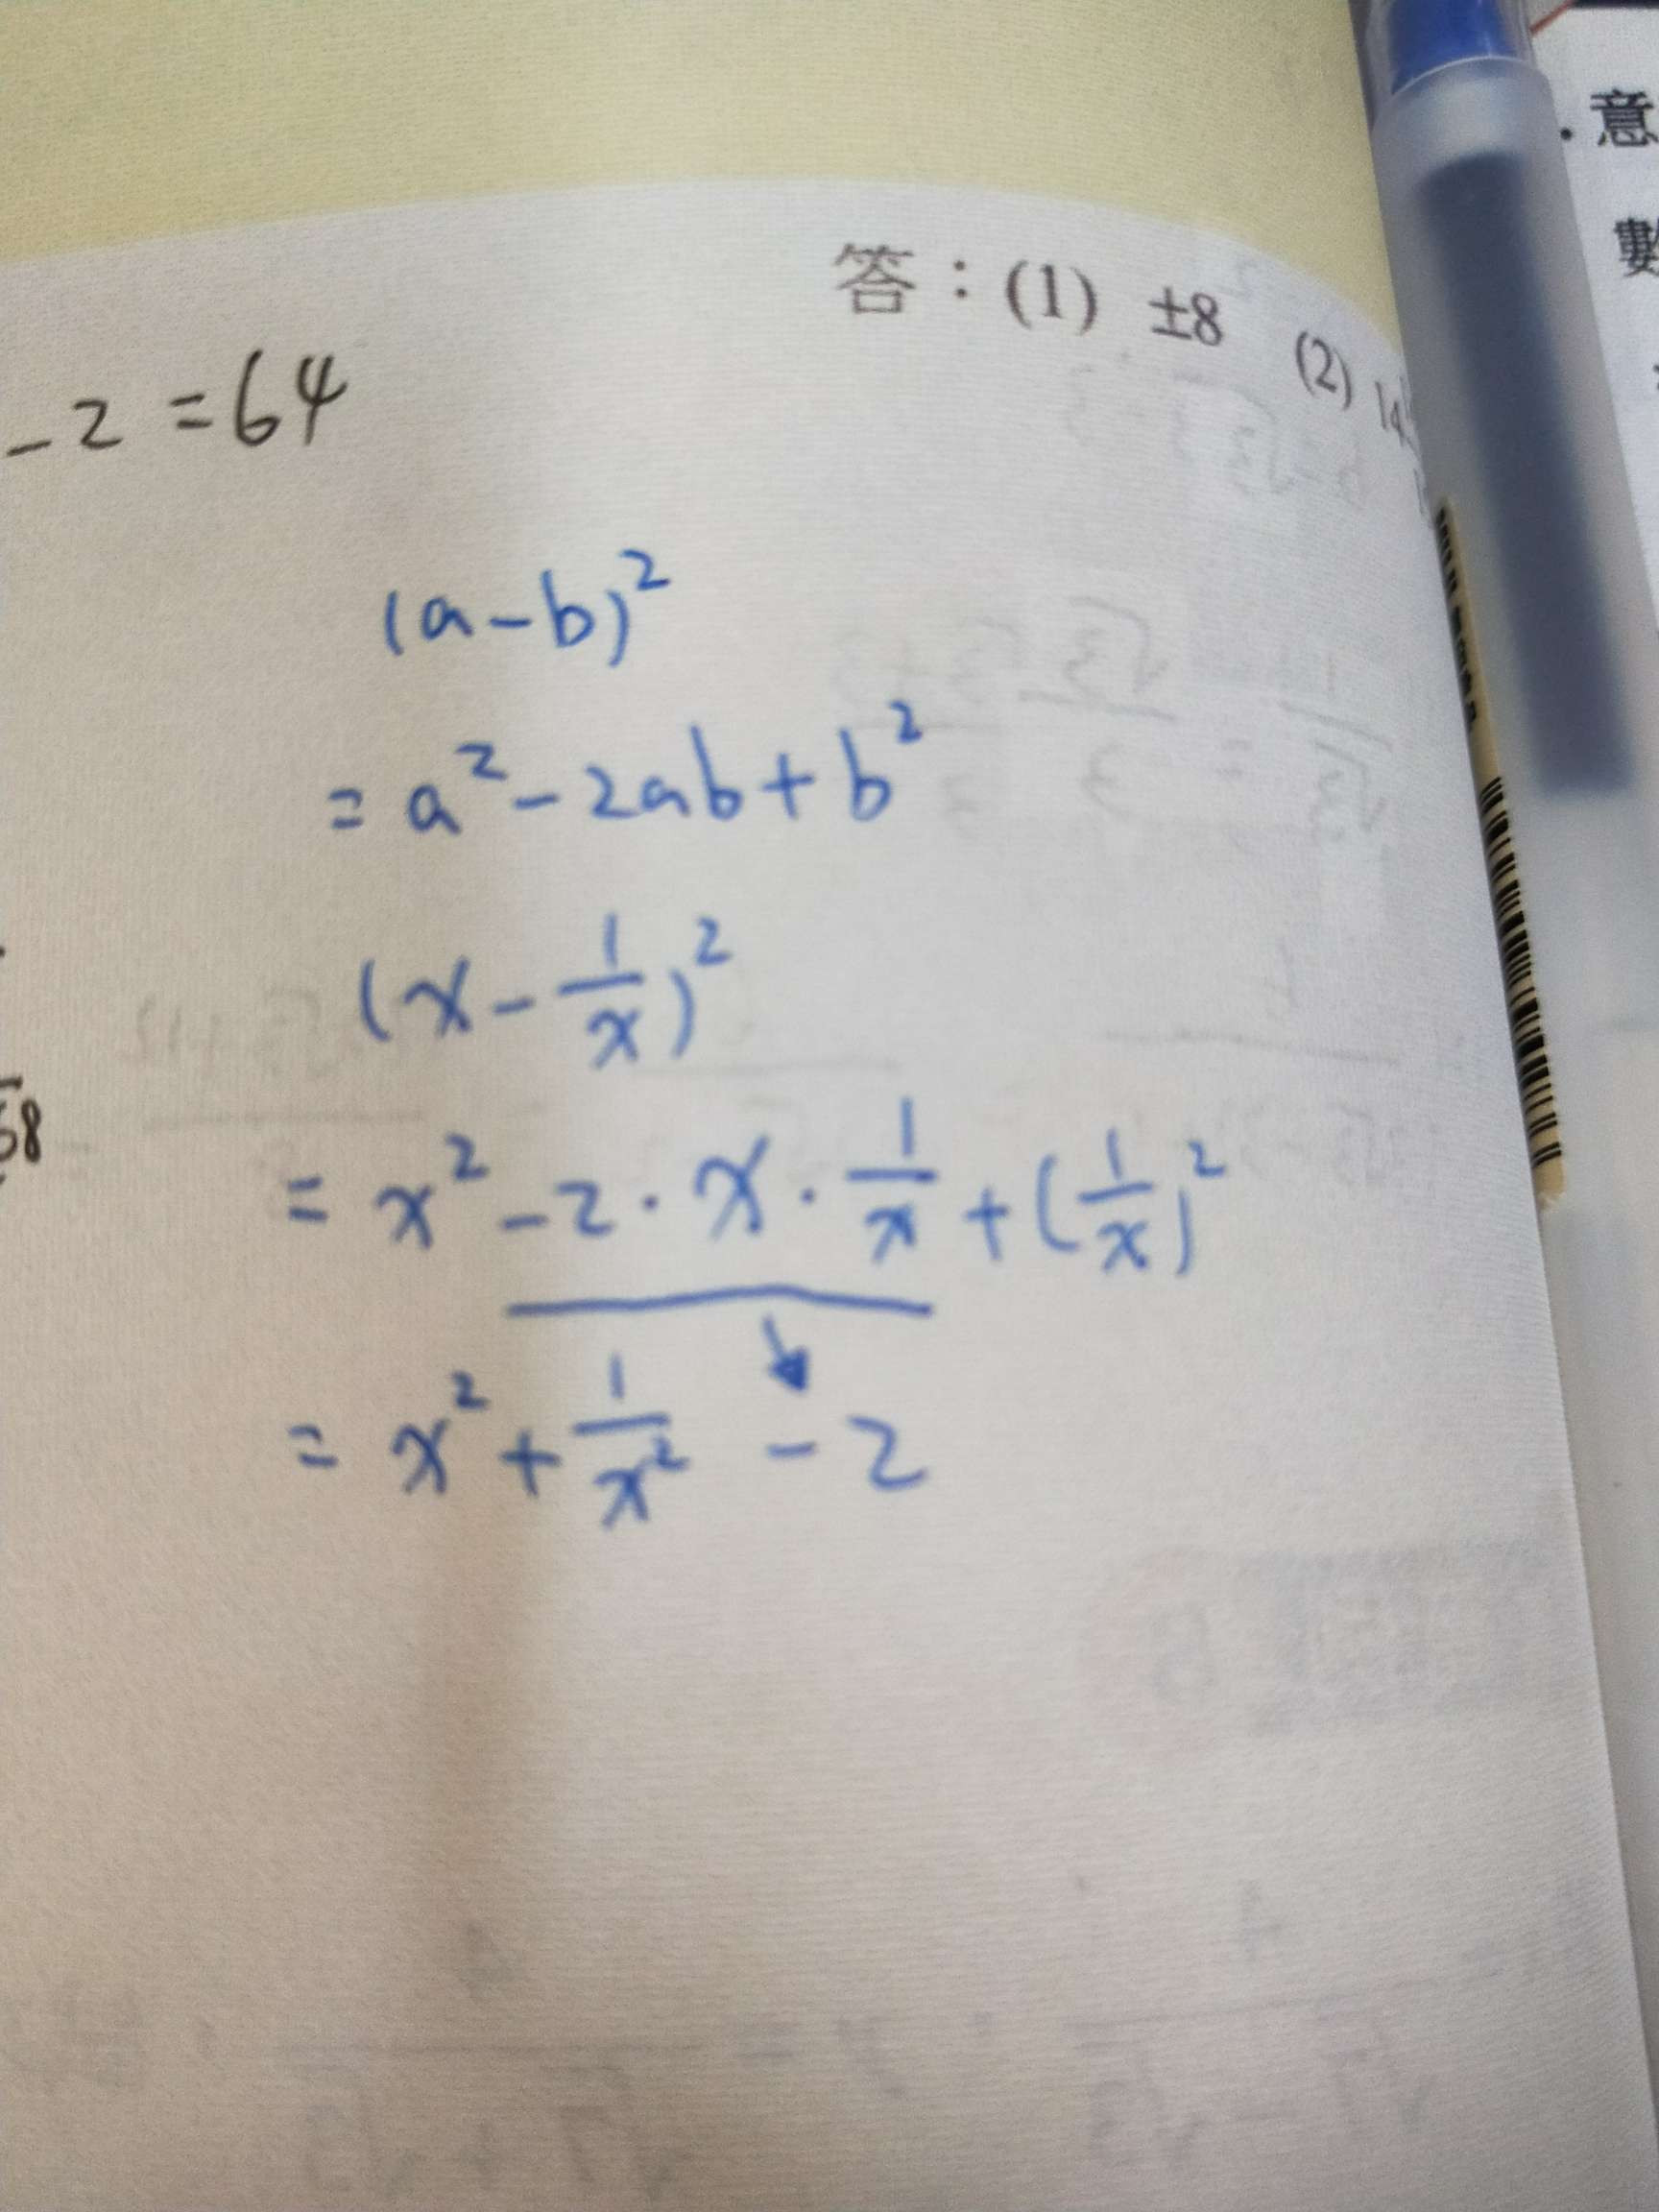 意
數
答：(1) ±8 (2)
-2 = 64
(a-b)²
= a² - 2ab + b²
(x - 1/x)²
68
= x² - 2 · x · 1/x + (1/x)²
= x² + 1/x² - 2